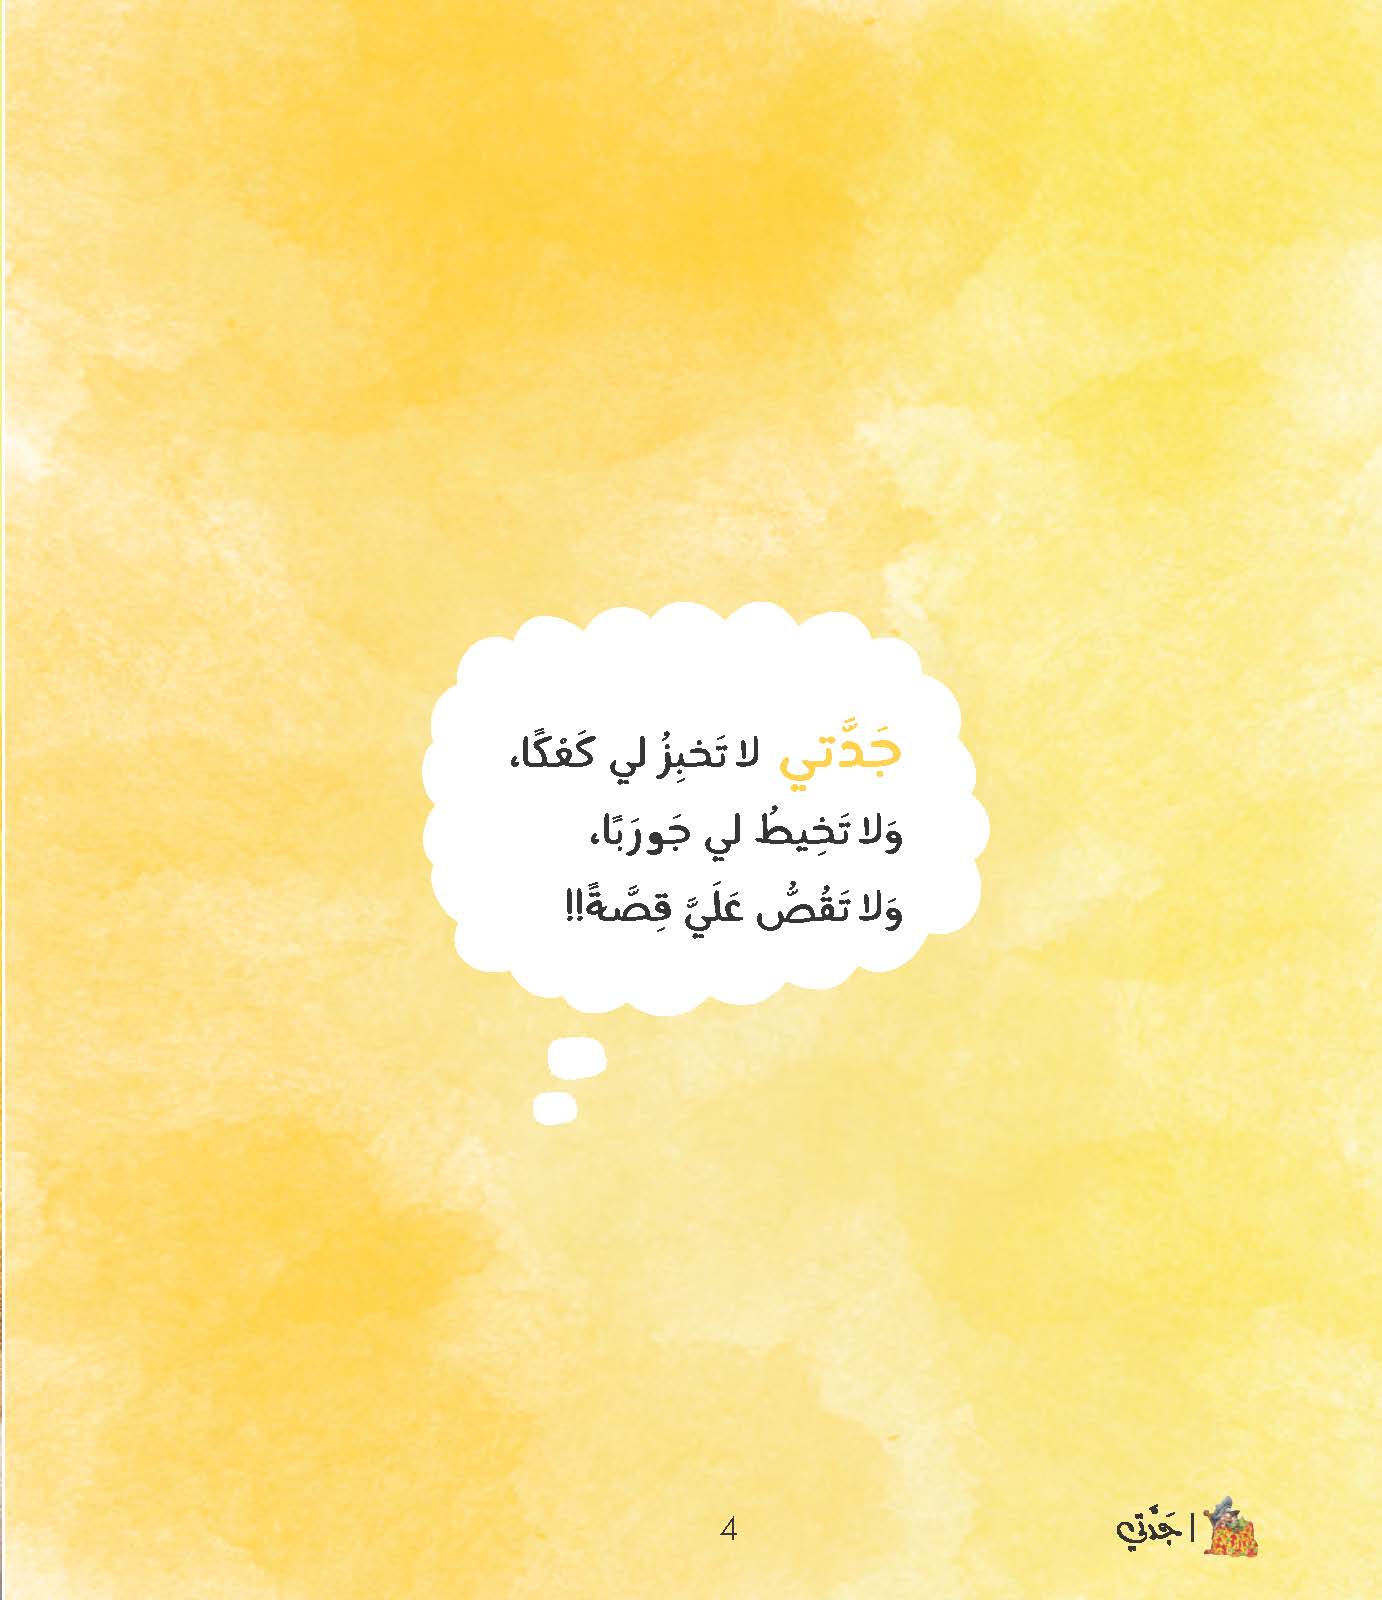 جَدَّتي لا تَخبِزُ لي كَعْكًا،
وَلا تَخِيطُ لي جَورَبًا،
وَلا تَقُصُّ عَلَيَّ قِصَّةً!!
4
| جَدَّتي